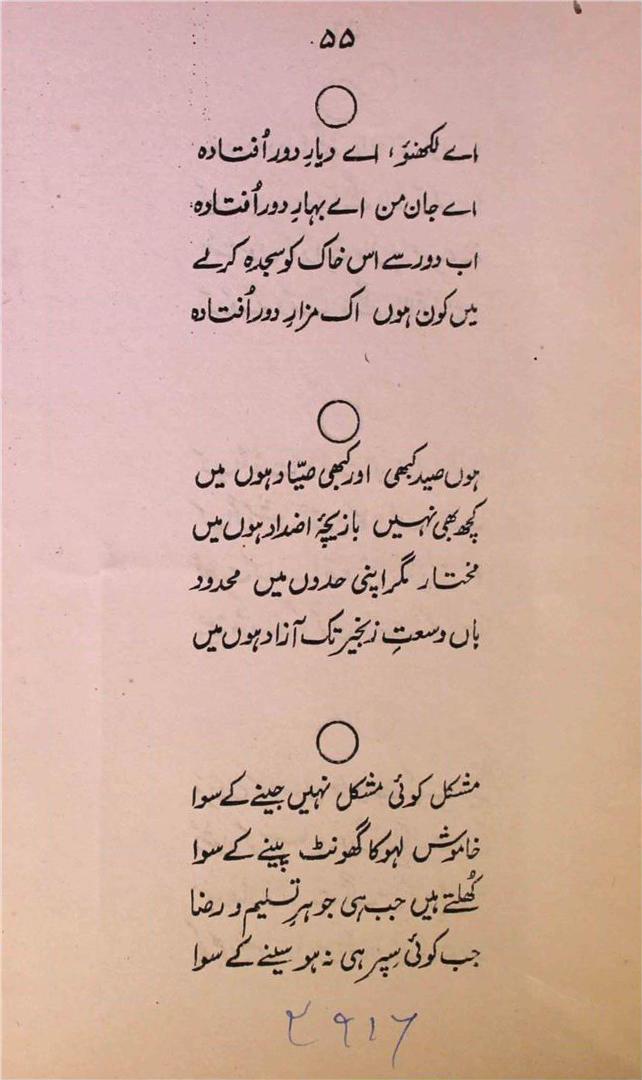 ۵۵
اے لکھنؤ، اے دیارِ دور اُفتادہ
اے جان من اے بہارِ دور اُفتادہ
اب دور سے اس خاک کو سجدہ کرلے
میں کون ہوں اک مزارِ دور اُفتادہ
ہوں صید کبھی اور کبھی صیّاد ہوں میں
کچھ بھی نہیں بازیچۂ اضداد ہوں میں
مختار مگر اپنی حدوں میں محدود
ہاں وسعتِ زنجیر تک آزاد ہوں میں
مشکل کوئی مشکل نہیں جینے کے سوا
خاموش لہو کا گھونٹ پینے کے سوا
کُھلتے ہیں جب ہی جوہرِ تسلیم و رضا
جب کوئی سِپر ہی نہ ہو سینے کے سوا
۲۹۱۶